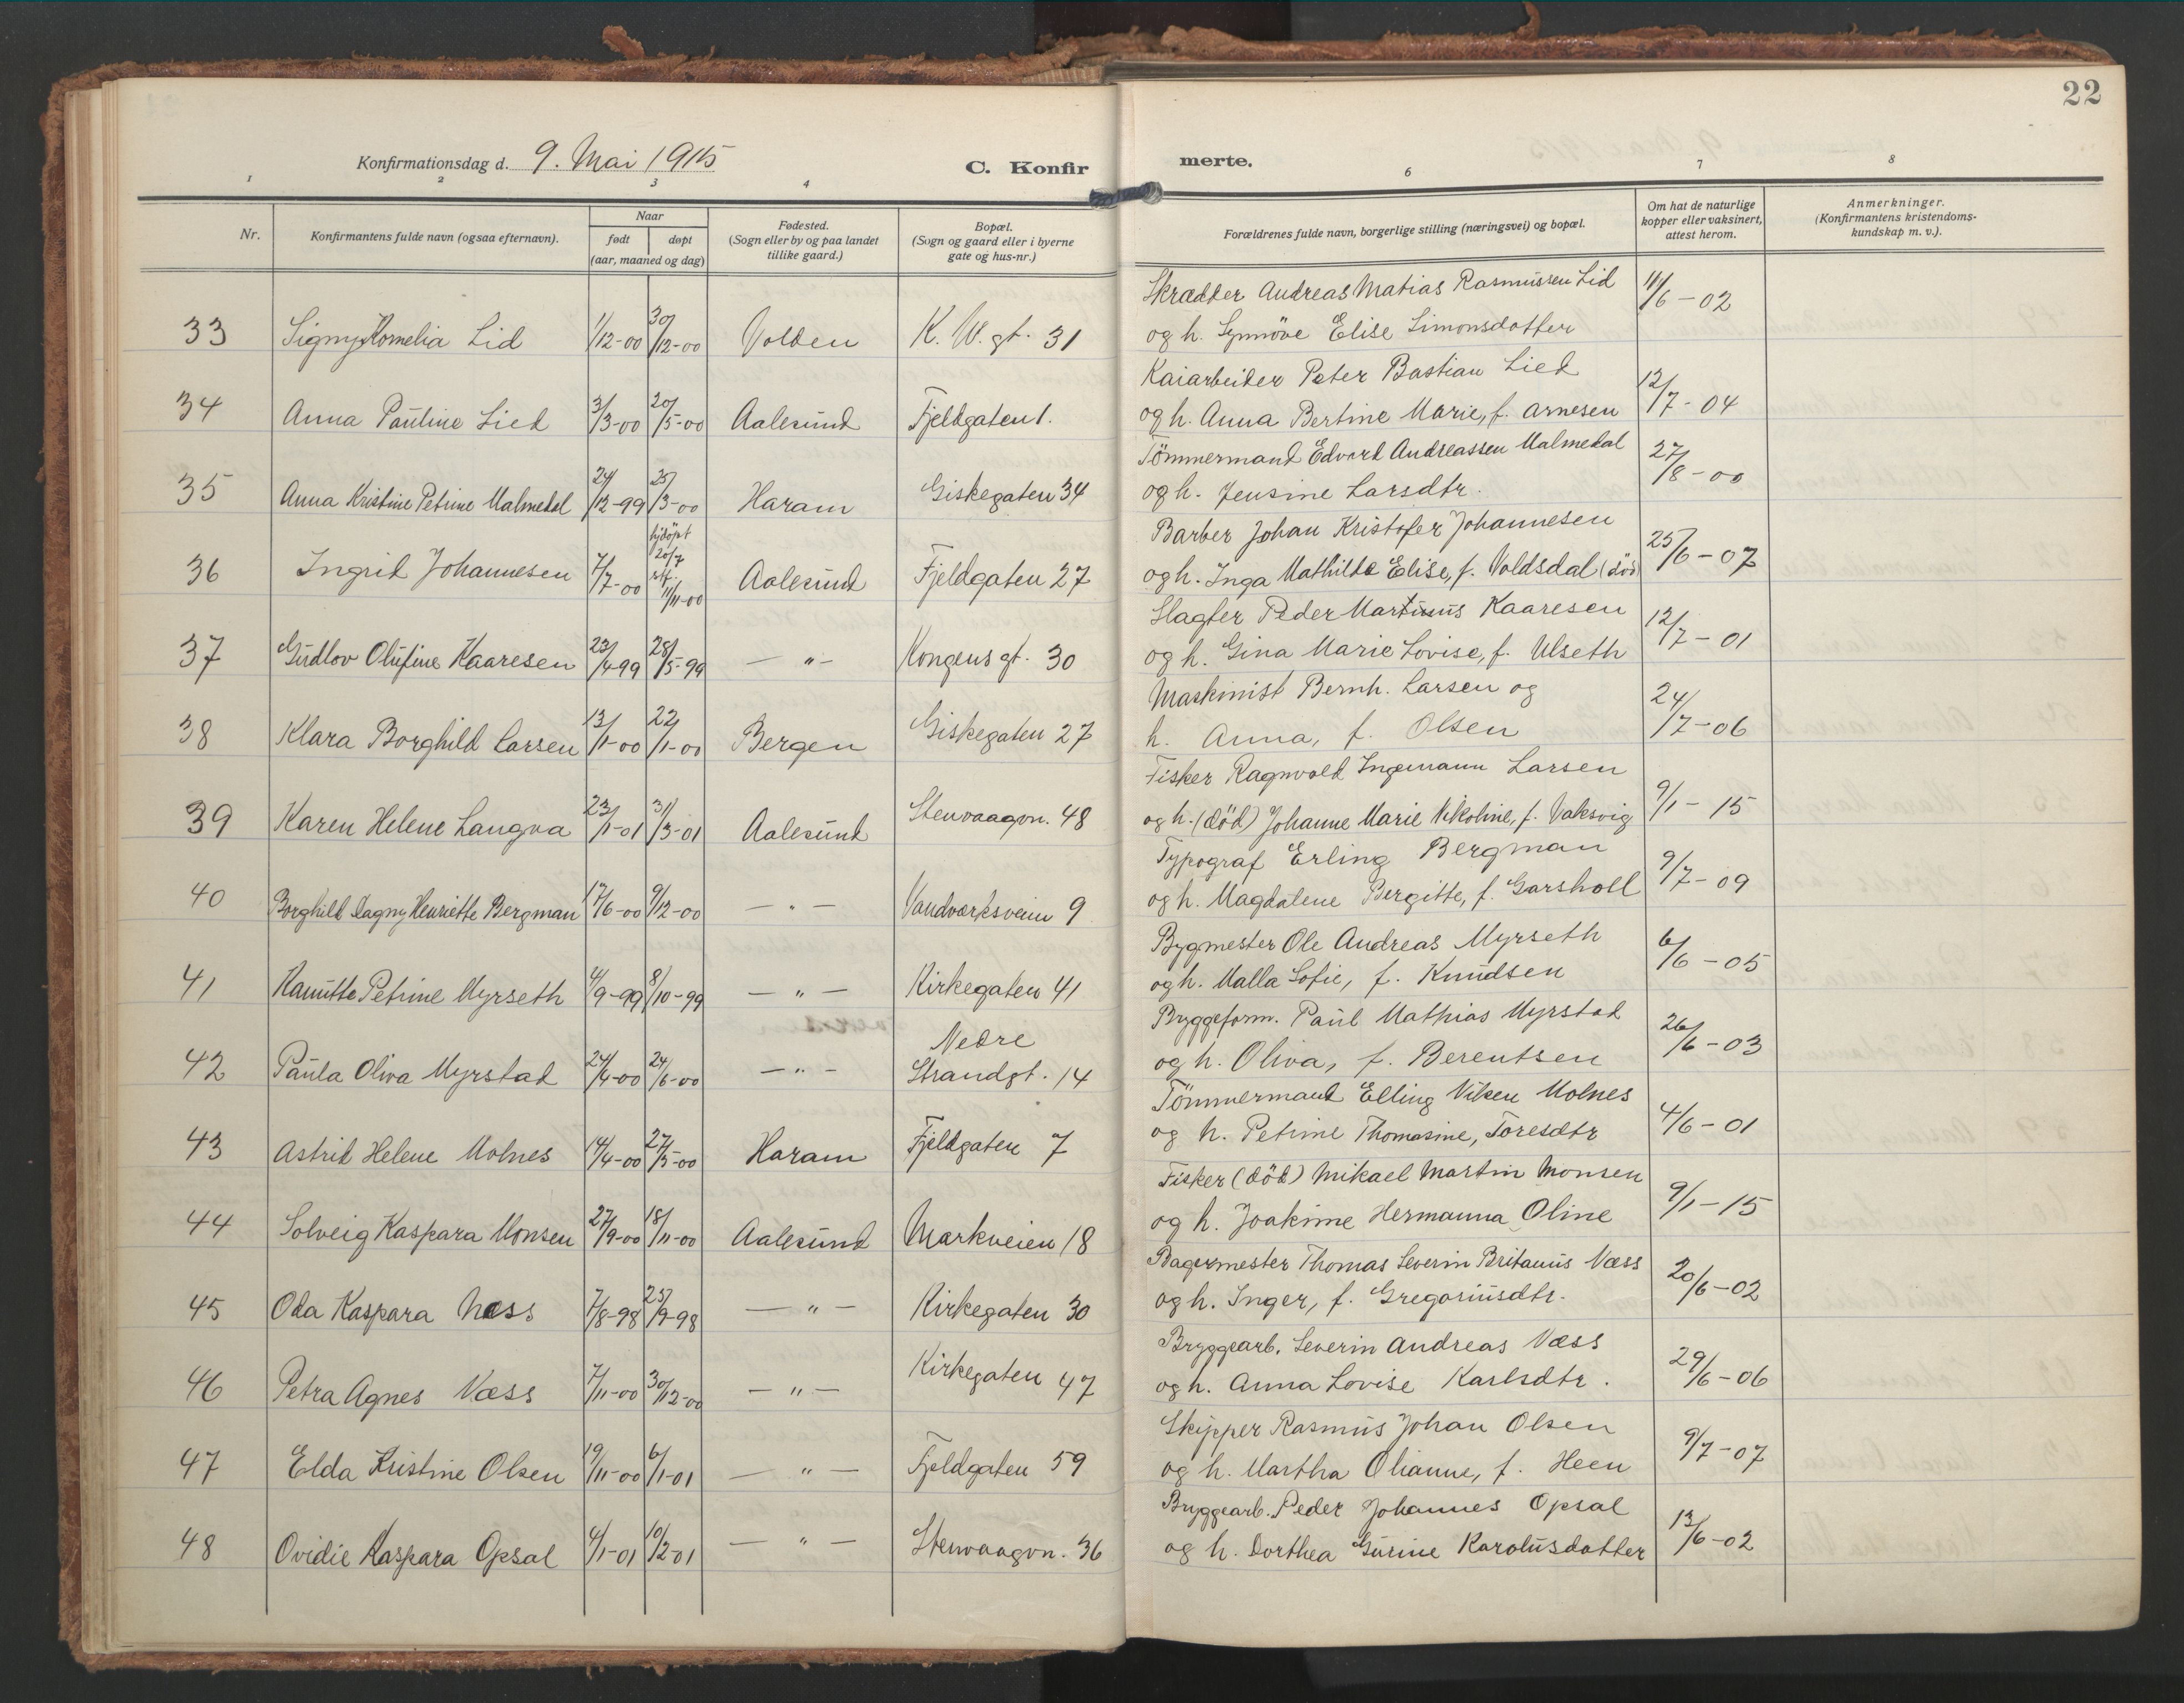 22
Konfirmationsdag d. 9. Mai 1915
C. Konfirmerte.
1 2 3 4 6 7 8
Nr.
Konfirmantens fulde navn (ogsaa efternavn).
Naar
født døpt
(aar, maaned og dag)
Fødested.
(Sogn eller by og paa landet
tillike gaard.)
Bopæl.
(Sogn og gaard eller i byerne
gate og hus-nr.)
Forældrenes fulde navn, borgerlige stilling (næringsvei) og bopæl.
Om hat de naturlige
kopper eller vaksinert,
attest herom.
Anmerkninger.
(Konfirmantens kristendoms-
kundskap m. v.).
Skrædder Andreas Matias Rasmussen Lid
33 Signy Kornelia Lid 1/12-00 30/12-00 Volden K. W. gt. 31 og h. Synnöve Elise Simonsdotter 11/6-02
Kaiarbeider Peter Bastian Lied
34 Anna Pauline Lied 3/3-00 20/5-00 Aalesund Fjeldgaten 1. og h. Anna Bertine Marie, f. Arnesen 12/7-04
Tömmermand Edvard Andreassen Malmedal
35 Anna Kristine Petrine Malmedal 24/12-99 25/3-00 Haram Giskegaten 34 og h. Jensine Larsdtr. 27/8-00
Barber Johan Kristofer Johannesen
36 Ingrid Johannesen 7/7-00 hjdöpt 20/7 stf. 11/11-00 Aalesund Fjeldgaten 27 og h. Inga Mathilde Elise, f. Voldsdal (död) 25/6-07
Slagter Peder Martinus Kaaresen
37 Gudlov Olufine Kaaresen 23/4-99 28/5-99 — " — Kongens gt. 30 og h. Gina Marie Lovise, f. Ulseth 12/7-01
Maskinist Bernh. Larsen og
38 Klara Borghild Larsen 13/1-00 22/1-00 Bergen Giskegaten 27 h. Anna, f. Olsen 24/7-06
Fisker Ragnvald Ingemann Larsen
39 Karen Helene Langva 23/1-01 31/3-01 Aalesund Stenvaagvn. 48 og h. (död) Johanne Marie Nikoline, f. Vaksvig 9/1-15
Typograf Erling Bergman
40 Borghild Dagny Henriette Bergman 17/6-00 9/12-00 — " — Vandværksveien 9 og h. Magdalene Bergitte, f. Garsholl 9/7-09
Bygmester Ole Andreas Myrseth
41 Petrine Myrseth 4/9-99 8/10-99 — " — Kirkegaten 41 og h. Malla Sofie, f. Knudsen 6/6-05
Bryggeform. Paul Mathias Myrstad
42 Paula Oliva Myrstad 24/4-00 24/6-00 — " — Nedre Strandgt. 14 og h. Oliva, f. Berentsen 26/6-03
Tömmermand Elling Viken Molnes
43 Astrid Helene Molnes 14/4-00 27/5-00 Haram Fjeldgaten 7 og h. Petrine Thomasine, Toresdtr 4/6-01
Fisker (död) Mikael Martin Monsen
44 Solveig Kaspara Monsen 27/9-00 18/11-00 Aalesund Markveien 18 og h. Joakime Hermanna Oline 9/1-15
Bagermester Thomas Severin Britanus Næss
45 Oda Kaspara Næss 7/8-98 25/9-98 — " — Kirkegaten 30 og h. Inger, f. Gregoriusdtr. 20/6-02
Bryggearb. Severin Andreas Næss
46 Petra Agnes Næss 7/11-00 30/12-00 — " — Kirkegaten 47 og h. Anna Lovise Karlsdtr. 29/6-06
Skipper Rasmus Johan Olsen
47 Elda Kristine Olsen 19/11-00 6/1-01 — " — Fjeldgaten 59 og h. Martha Olianne, f. Heen 9/7-07
Bryggearb. Peder Johannes Opsal
48 Ovidie Kaspara Opsal 4/1-01 10/2-01 — " — Stenvaagvn. 36 og h. Dorthea Gurine Karolusdotter 13/6-02